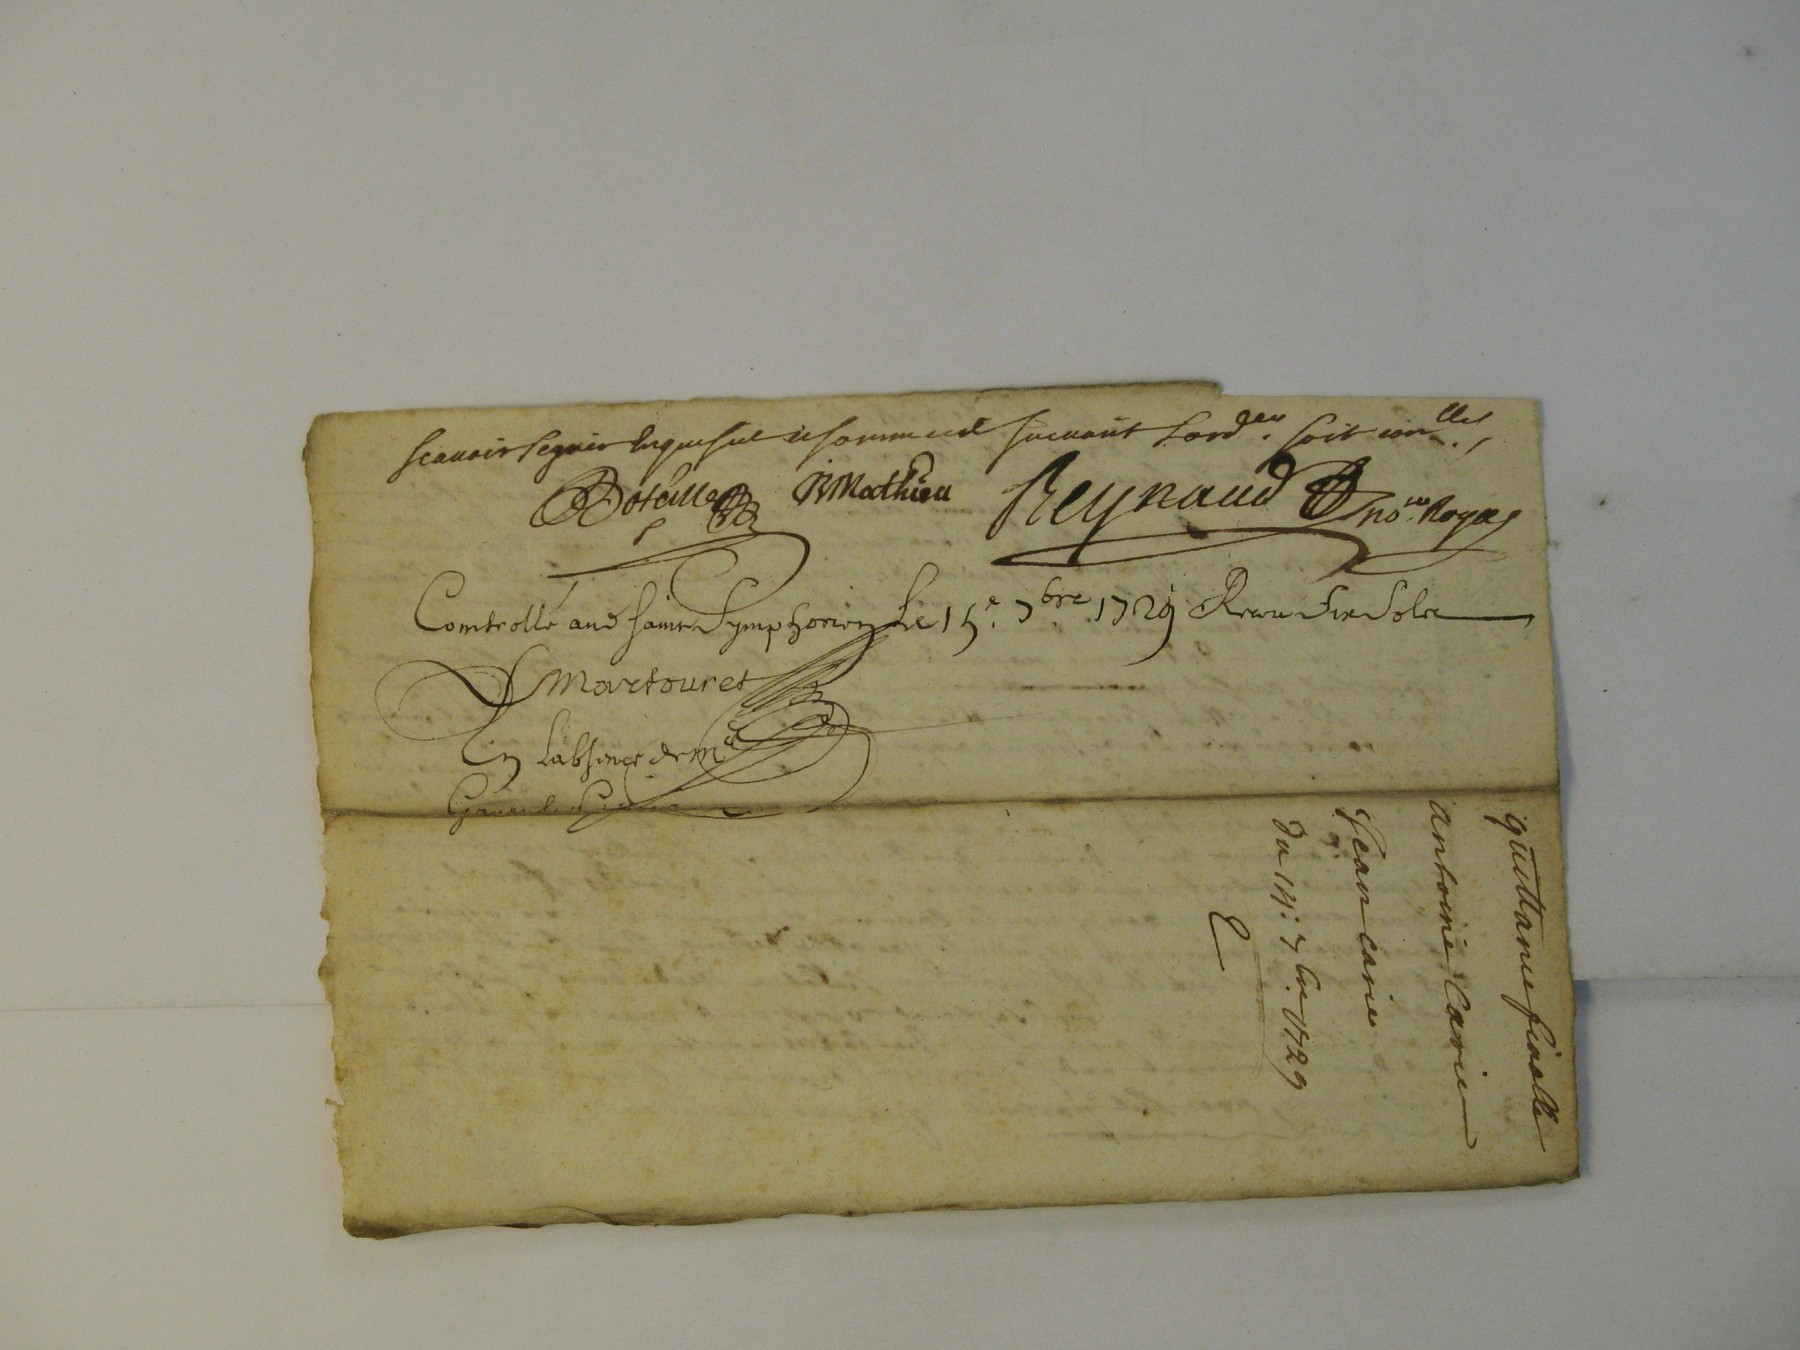 scavoir signer enquis et sommed suivant Lord.ce soit conlle.
Botaille JBMathieu Reynaud no.re Royal
Controllé aud Saint Symphorien Le 15.e 7bre. 1729 Receu Six Sols
Martouret
En Labsence de mr
quittance finalle
antoine Carie
Jean carie
Du 14: 7bre 1729